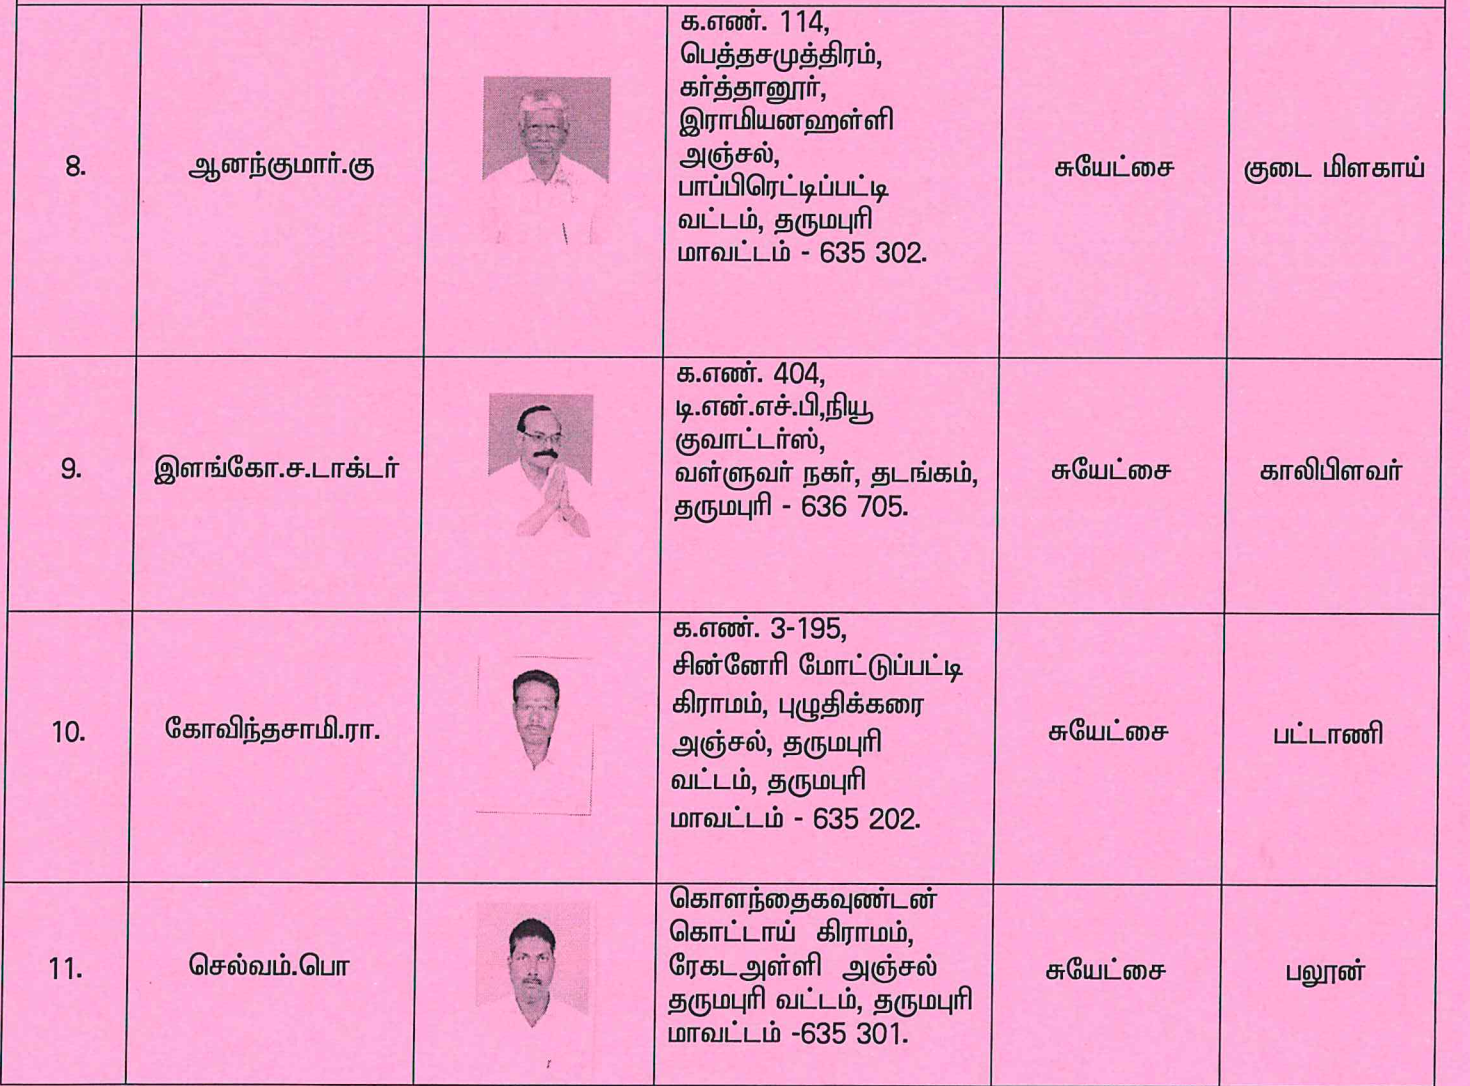 8.
ஆனந்குமார்.கு
க.எண். 114,
பெத்தசமுத்திரம்,
கர்த்தானூர்,
இராமியனஹள்ளி
அஞ்சல்,
பாப்பிரெட்டிப்பட்டி
வட்டம், தருமபுரி
மாவட்டம் - 635 302.
சுயேட்சை
குடை மிளகாய்
9.
இளங்கோ.ச.டாக்டர்
க.எண். 404,
டி.என்.எச்.பி,நியூ
குவாட்டர்ஸ்,
வள்ளுவர் நகர், தடங்கம்,
தருமபுரி - 636 705.
சுயேட்சை
காலிபிளவர்
10.
கோவிந்தசாமி.ரா.
க.எண். 3-195,
சின்னேரி மோட்டுப்பட்டி
கிராமம், புழுதிக்கரை
அஞ்சல், தருமபுரி
வட்டம், தருமபுரி
மாவட்டம் - 635 202.
சுயேட்சை
பட்டாணி
11.
செல்வம்.பொ
கொளந்தைகவுண்டன்
கொட்டாய் கிராமம்,
ரேகடஅள்ளி அஞ்சல்
தருமபுரி வட்டம், தருமபுரி
மாவட்டம் -635 301.
சுயேட்சை
பலூன்